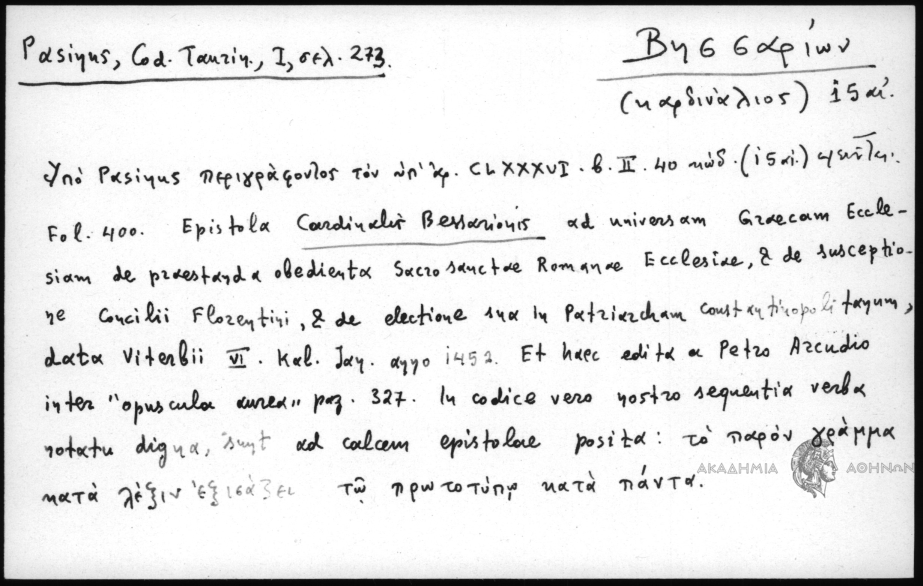 Pasinus, Cod. Taurin., I, σελ. 273.
Βησσαρίων
(καρδινάλιος) 15 αἰ.
Ὑπὸ Pasinus περιγράφοντος τὸν ὑπ' ἀρ. CLXXXVI. b. II. 40 κώδ. (15 αἰ.)
Fol. 400. Epistola Cardinalis Bessarionis ad universam Graecam Eccle-
siam de praestanda obedienta Sacrosanctae Romanae Ecclesiae, & de susceptio-
ne Concilii Florentini, & de electione sua in Patriarcham Constantinopolitanum,
data Viterbii VI. Kal. Jan. anno 1452. Et haec edita a Petro Arcudio
inter "opuscula aurea" pag. 327. In codice vero nostro sequentia verba
notatu digna, sunt ad calcem epistolae posita: τὸ παρὸν γράμμα
κατὰ λέξιν ἐξισάζει τῷ πρωτοτύπῳ κατὰ πάντα.
ΑΚΑΔΗΜΙΑ ΑΘΗΝΩΝ